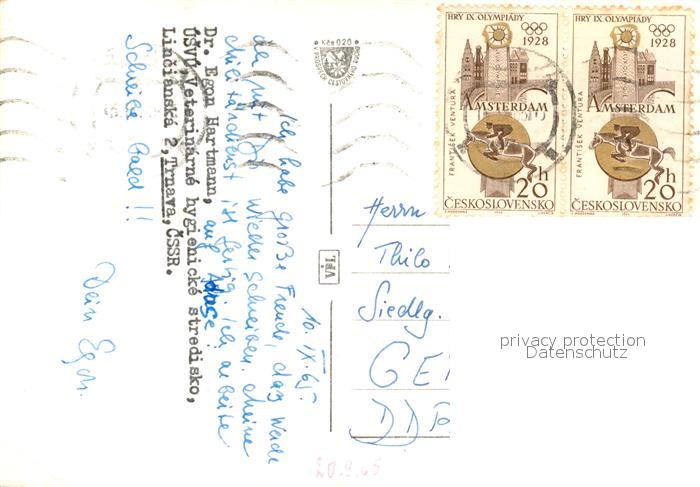 HRY IX. OLYMPIÁDY
1928
AMSTERDAM
FRANTIŠEK VENTURA
20h
ČESKOSLOVENSKO
HRY IX. OLYMPIÁDY
1928
AMSTERDAM
FRANTIŠEK VENTURA
20h
ČESKOSLOVENSKO
Kčs 0.20
10. IX. 65.
Ich habe große Freude, das
wieder schreiben. Meine
Militärdienst ist fertig. Ich arbeite
auf
Dr. Egon Hartmann,
ÚSVÚ, Veterinarné hygienické stredisko,
Linčianská 2, Trnava, ČSSR.
Schreibe bald!!
Dein Egon.
Herrn
Thilo
Siedlg.
GE
DD
20.9.65
privacy protection
Datenschutz